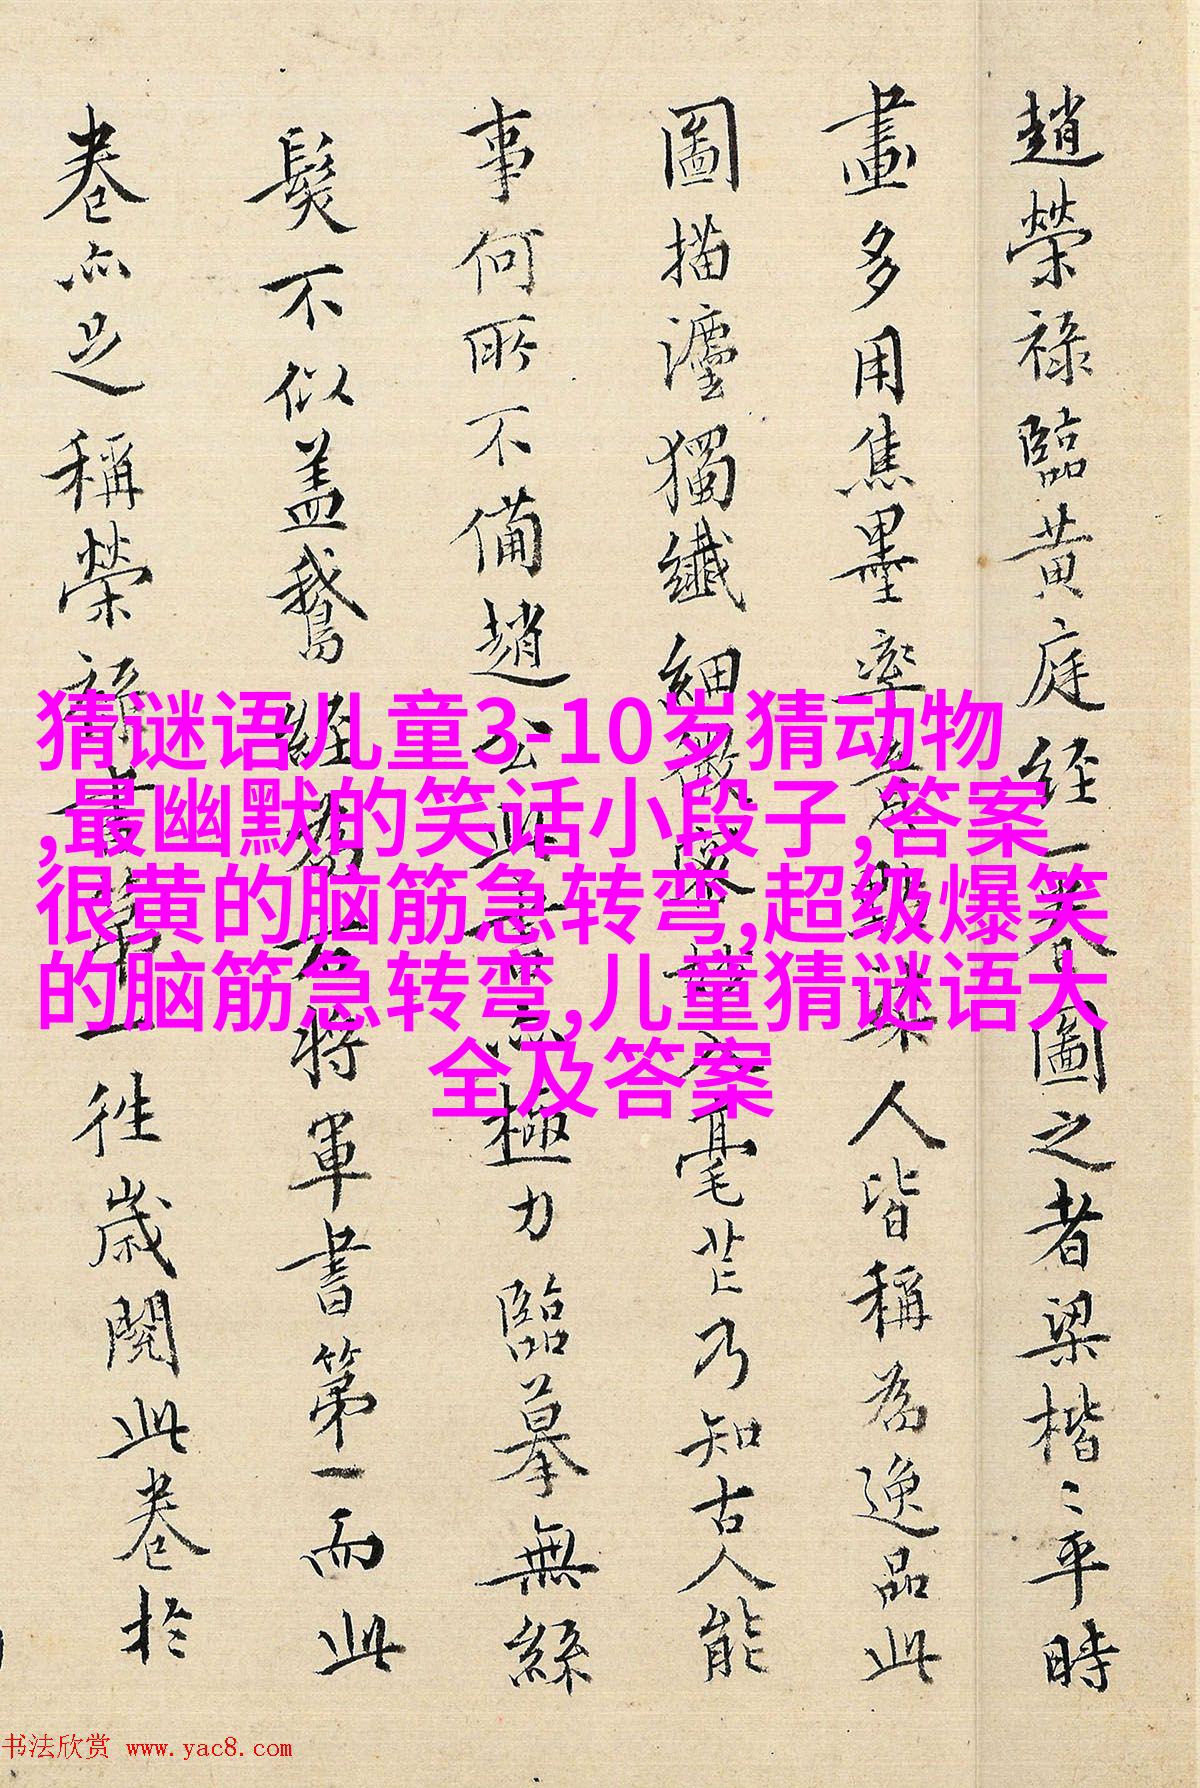 趙榮祿臨黃庭經一卷圖之者梁楷〻平時
畫多用焦墨率意點綴人皆稱為逸品此
圖描灋獨纖細微密入毫芒乃知古人能
事何所不備趙公此書亦極力臨摹無絲
髮不似盖鵞經為右將軍書第一而此
卷亦足稱榮祿書第一往歲閱此卷於
猜谜语儿童3-10岁猜动物
,最幽默的笑话小段子,答案
很黄的脑筋急转弯,超级爆笑
的脑筋急转弯,儿童猜谜语大
全及答案
书法欣赏 www.yac8.com